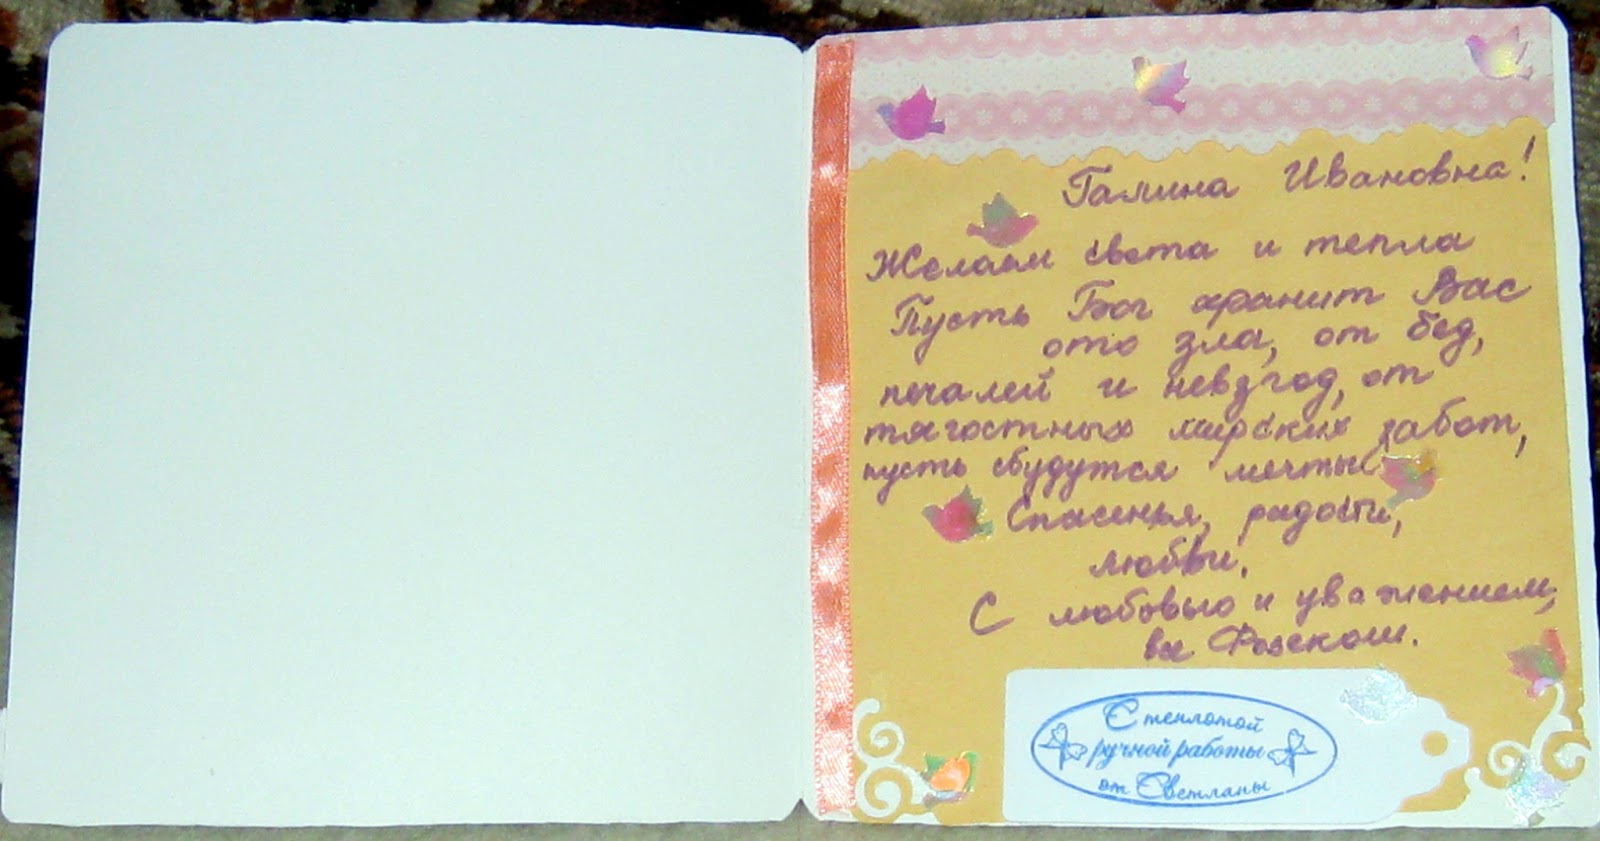 Галина Ивановна!
Желаем света и тепла
Пусть Бог хранит Вас
ото зла, от бед,
печалей и невзгод, от
тягостных мирских забот,
пусть сбудутся мечты
Спасенья, радости,
любви.
С любовью и уважением,
вся
С теплотой
ручной работы
от Светланы